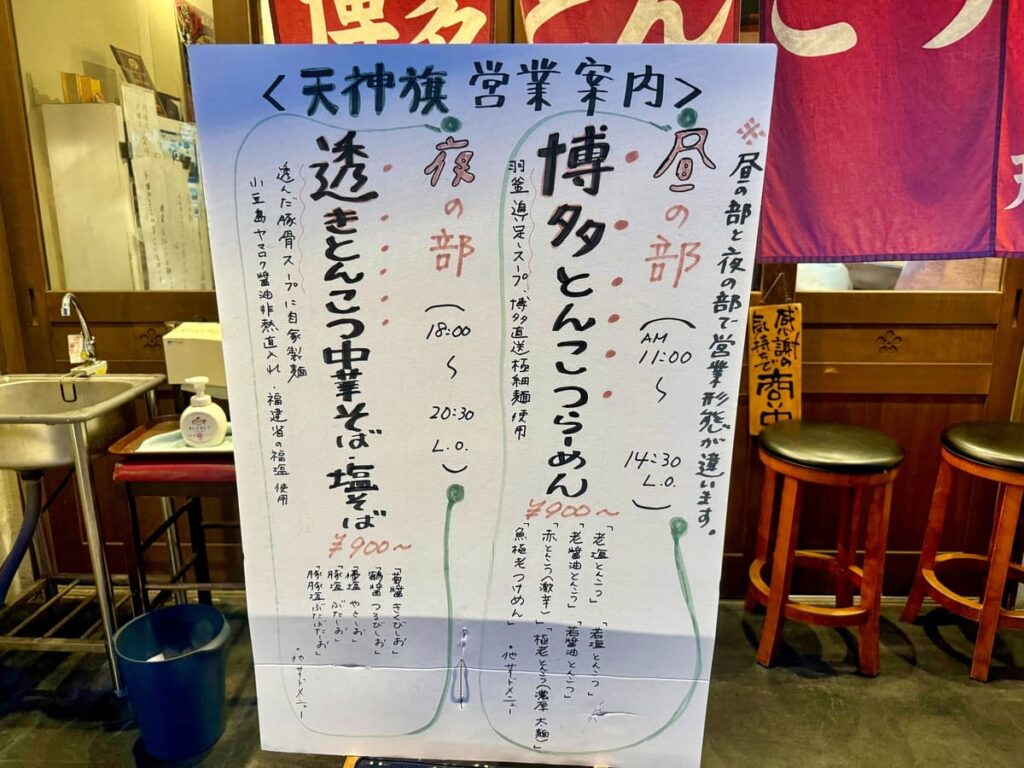 博多とんこつ
<天神旗 営業案内>
※昼の部と夜の部で営業形態が違います。
昼の部
(AM 11:00 〜 14:30 L.O.)
博多とんこつらーめん
¥900〜
羽釜追足スープ、博多直送極細麺使用
「老塩とんこつ」「若塩とんこつ」
「老醤油とんこつ」「若醤油とんこつ」
「赤とんこつ(激辛)」「極老とんこつ(濃厚 太麺)」
「魚極老つけめん」 ・他サイドメニュー
夜の部
(18:00 〜 20:30 L.O.)
透きとんこつ中華そば・塩そば
¥900〜
透んだ豚骨スープに自家製麺
小豆島ヤマロク醤油非熱直入れ・福建省の福塩使用
「菊醬 きくびしお」
「鶴醬 つるびしお」
「優塩 やさしお」
「豚塩 ぶたしお」
「豚豚塩 ぶたぶたしお」 ・他サイドメニュー
感謝の
気持ちで
商い中